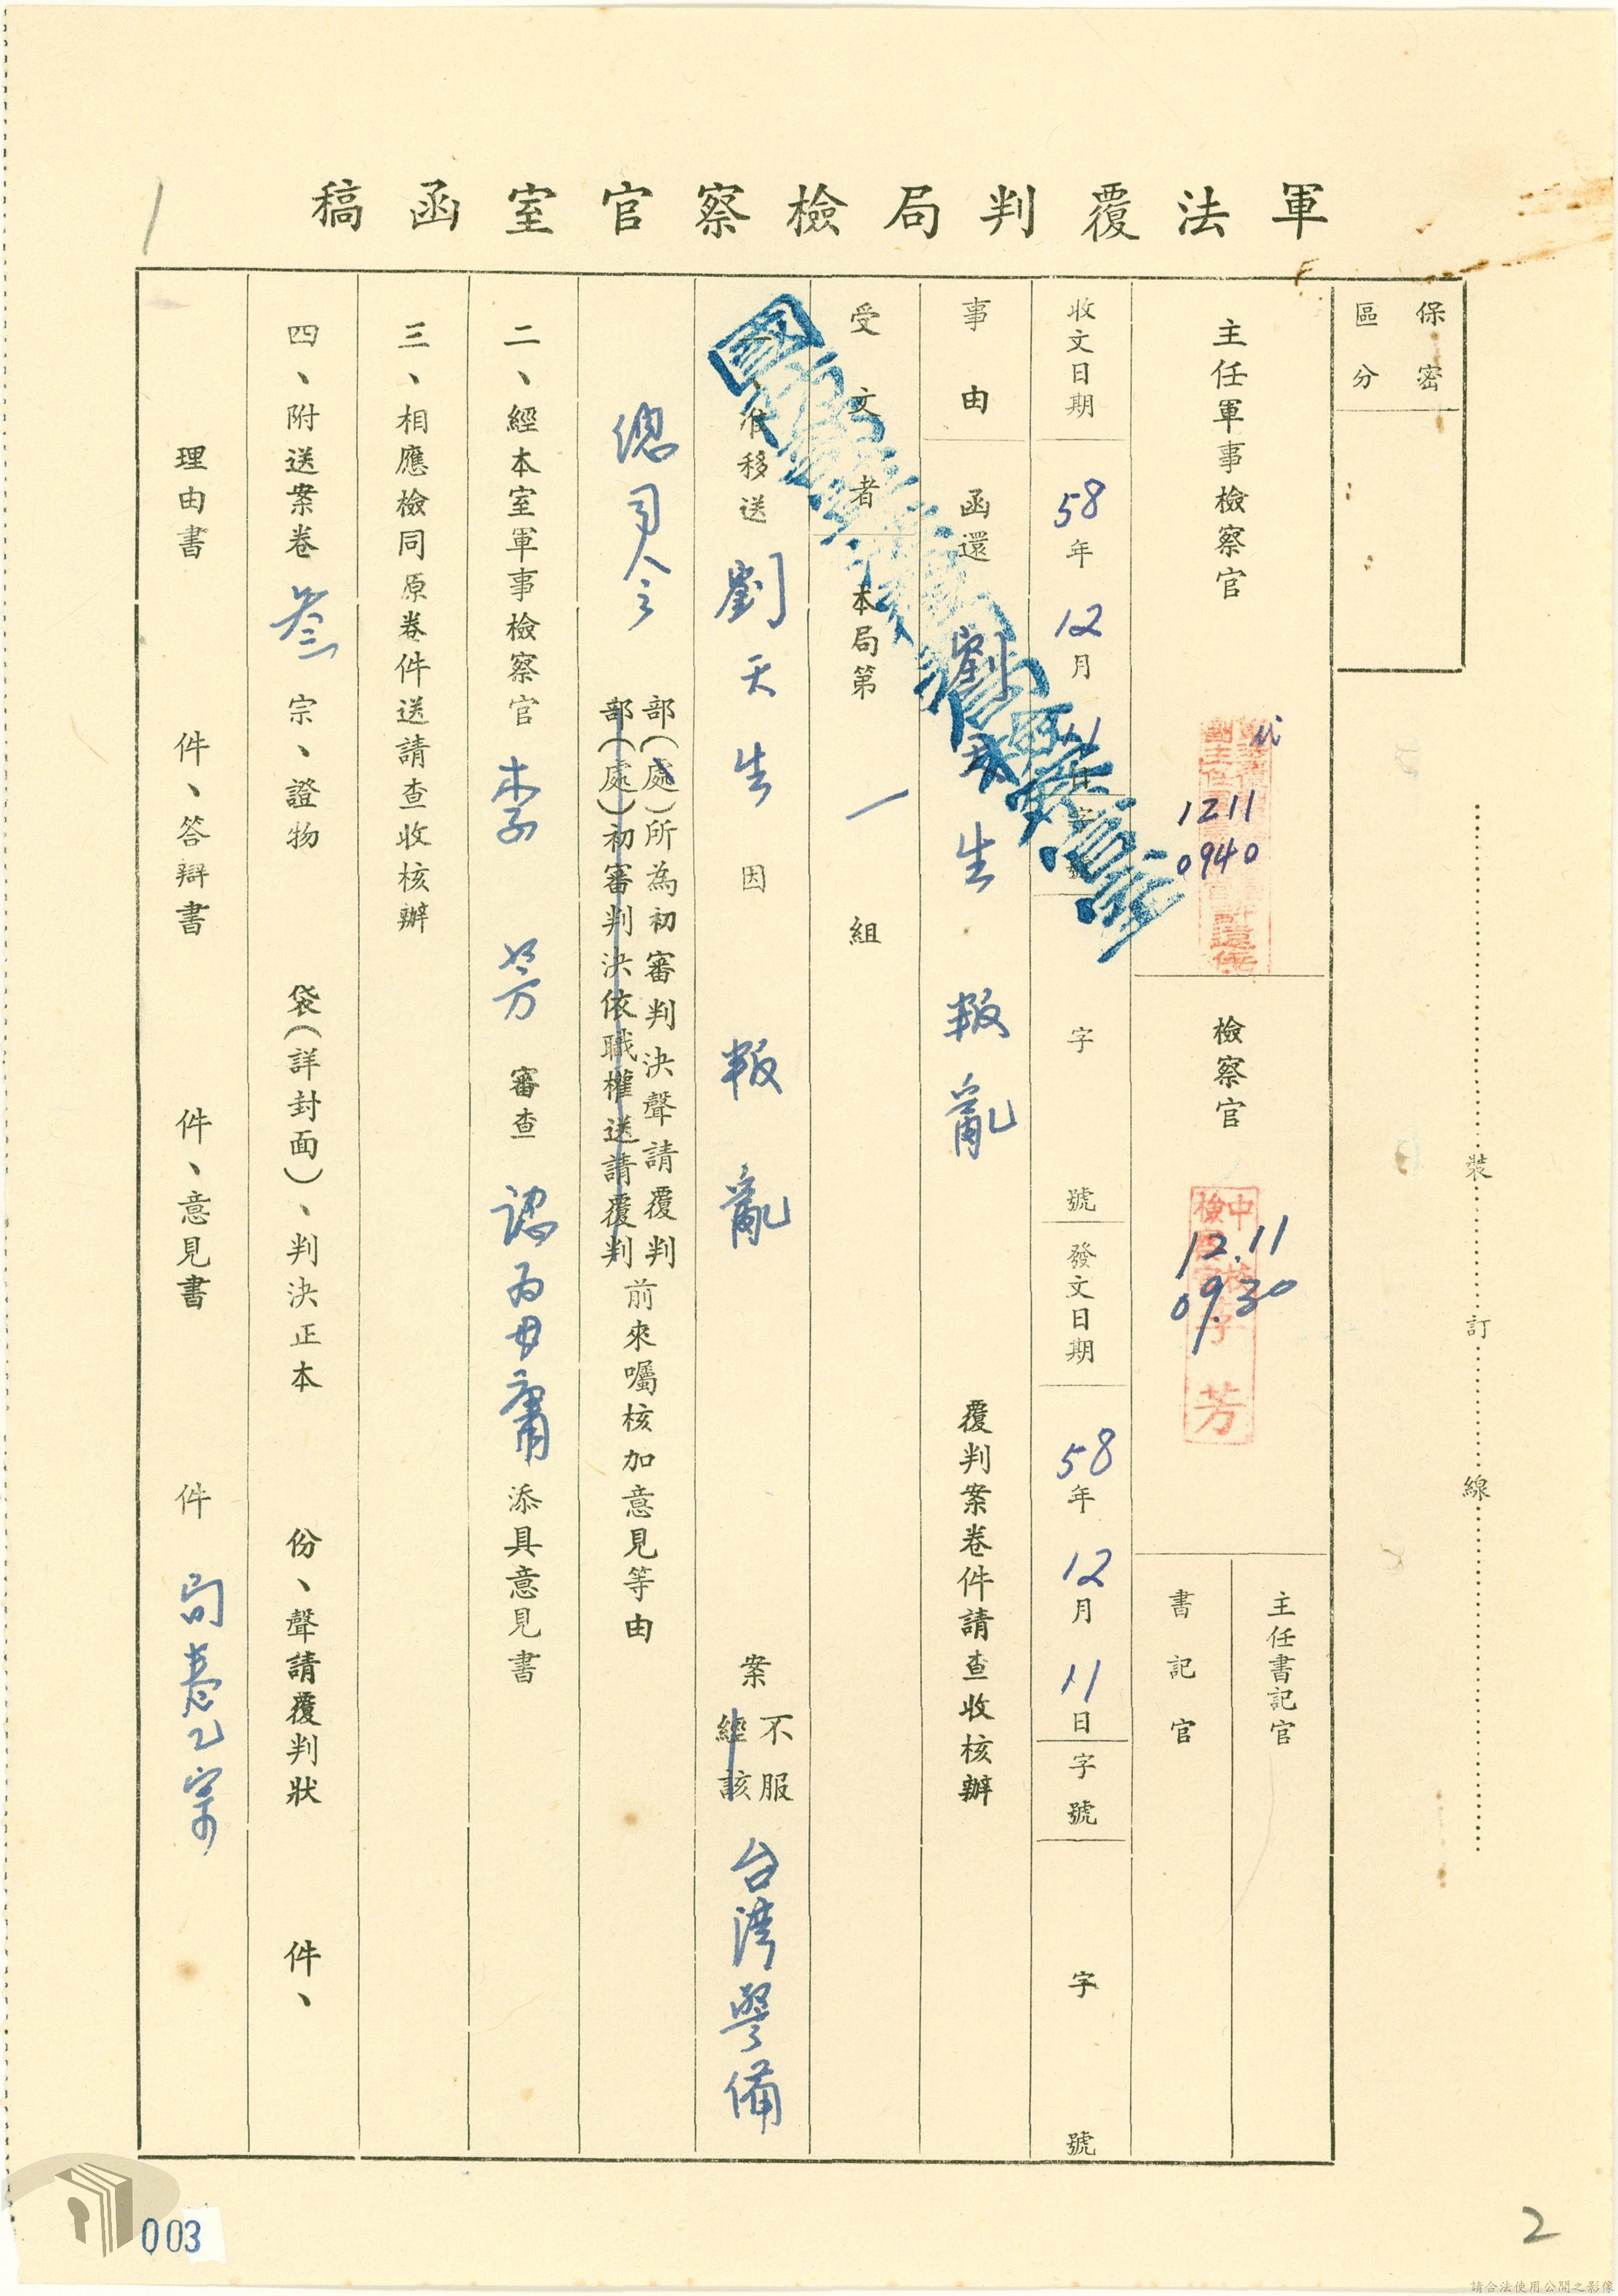 軍法覆判局檢察官室函稿
保密
區分
主任軍事檢察官
1211
0940
檢察官
12.11
09.30
芳
主任書記官
書記官
收文日期 58年12月11日 字號 字 號 發文日期 58年12月11日 字號 字 號
事由 函還 劉天生 叛亂 覆判案卷件請查收核辦
受文者 本局第一組
一、准移送 劉天生 因 叛亂 案 不服 台灣警備
經該
總司令 部(處)所為初審判決聲請覆判 前來囑核加意見等由
部(處)初審判決依職權送請覆判
二、經本室軍事檢察官 李芳 審查 認為毋庸 添具意見書
三、相應檢同原卷件送請查收核辦
四、附送案卷 叁 宗、證物 袋(詳封面)、判決正本 份、聲請覆判狀 件、
理由書 件、答辯書 件、意見書 件 局卷乙宗
裝 訂 線
003
2
請合法使用公開之影像